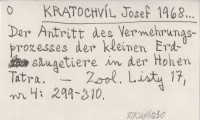 O KRATOCHVÍL Josef 1968...
Der Antritt des Vermehrungs-
prozesses der kleinen Erd-
säugetiere in der Hohen
Tatra. — Zool. Listy 17,
nr 4: 299-310.